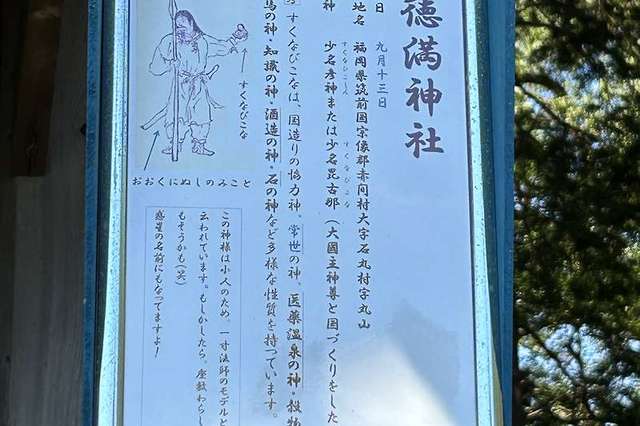 徳満神社
日 九月十三日
地名 福岡県筑前国宗像郡赤間村大字石丸村字丸山
神 少名彦神または少名毘古那(大國主神尊と国づくりをした
すくなひこしん
すくなびこな
すくなびこなは、国造りの協力神、常世の神、医薬温泉の神・穀物
の神・知識の神・酒造の神・石の神など多様な性質を持っています。
すくなびこな
おおくにぬしのみこと
この神様は小人のため、一寸法師のモデルと
云われています。もしかしたら、座敷わらし
もそうかも(笑)
惑星の名前にもなってますよ!